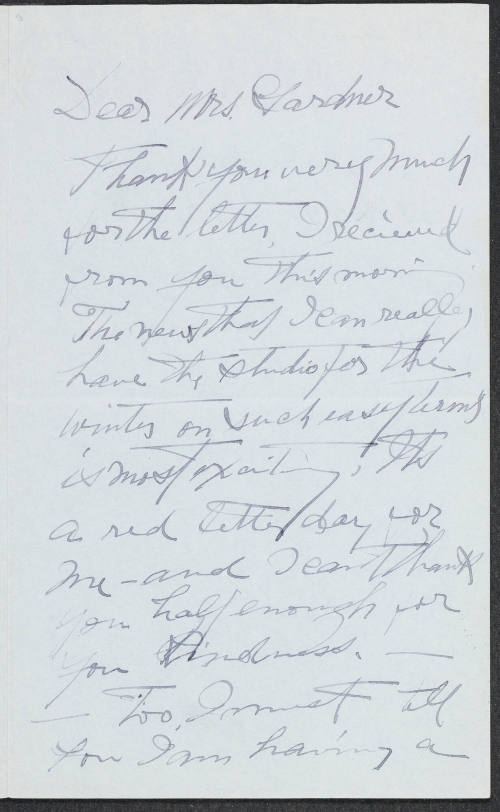 Dear Mrs. Gardner
Thank you very much
for the letter, I recieved
from you this morning.
The news that I can really
have the studio for the
winter on such easy terms
is most exciting; Its
a red letter day for
me - and I can't thank
you half enough for
you kindness. —
— Too, I must tell
you I am having a